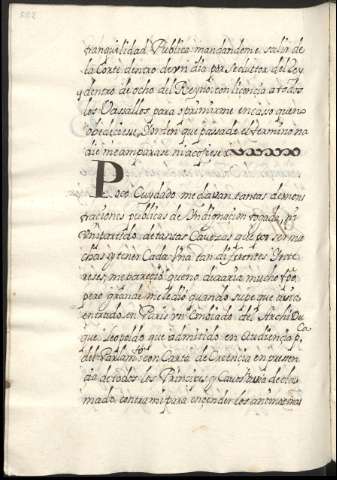 tranquilidad Publica mandandome salir de
la Corte dentro de un dia por seductor del Rey
y dentro de ocho del Reyno, con licencia a todos
los Vassallos para oprimirme en caso que no
obedeciese, y orden que pasado el termino na
die me amparase ni acojiese
Poco Cuydado me davan tantas demons
traciones publicas de Indignacion togada, y
un partido de tantas Cavezas que por ser mu
chas y tener Cada Una tan diferentes Ynte
reses, me pareçio que no duraria mucho
pero grande miedo quando supe que avia
entrado en Paris un Embiado del Archidu
que Leopoldo que admitido en Audiençia
del Parlamto con Carta de Creencia en presen
cia de todos los Principes y havia decla
mado contra mi para ençender los animos